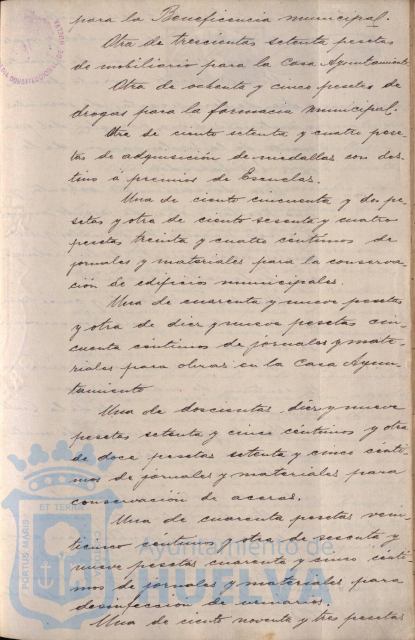 para la Beneficencia municipal.
Otra de trescientas setenta pesetas
de mobiliario para la Casa Ayuntamiento
Otra de ochenta y cinco pesetas de
drogas para la farmacia municipal.
Otra de ciento setenta y cuatro pese-
tas de adquisición de medallas con des-
tino á premios de Escuelas.
Una de ciento cincuenta y dos pe-
setas y otra de ciento sesenta y cuatro
pesetas treinta y cuatro céntimos de
jornales y materiales para la conserva-
ción de edificios municipales.
Una de cuarenta y nueve pesetas
y otra de diez y nueve pesetas cin-
cuenta céntimos de jornales y mate-
riales para obras en la Casa Ayun-
tamiento
Una de doscientas diez y nueve
pesetas setenta y cinco céntimos y otra
de doce pesetas setenta y cinco cénti-
mos de jornales y materiales para
conservación de aceras.
Una de cuarenta pesetas vein
ticinco centimos y otra de sesenta y
nueve pesetas cuarenta y cinco cénti-
mos de jornales y materiales para
desinfección de urinarios.
Una de ciento noventa y tres pesetas
ET TERRAE
PORTUS MARIS
Ayuntamiento de
HUELVA